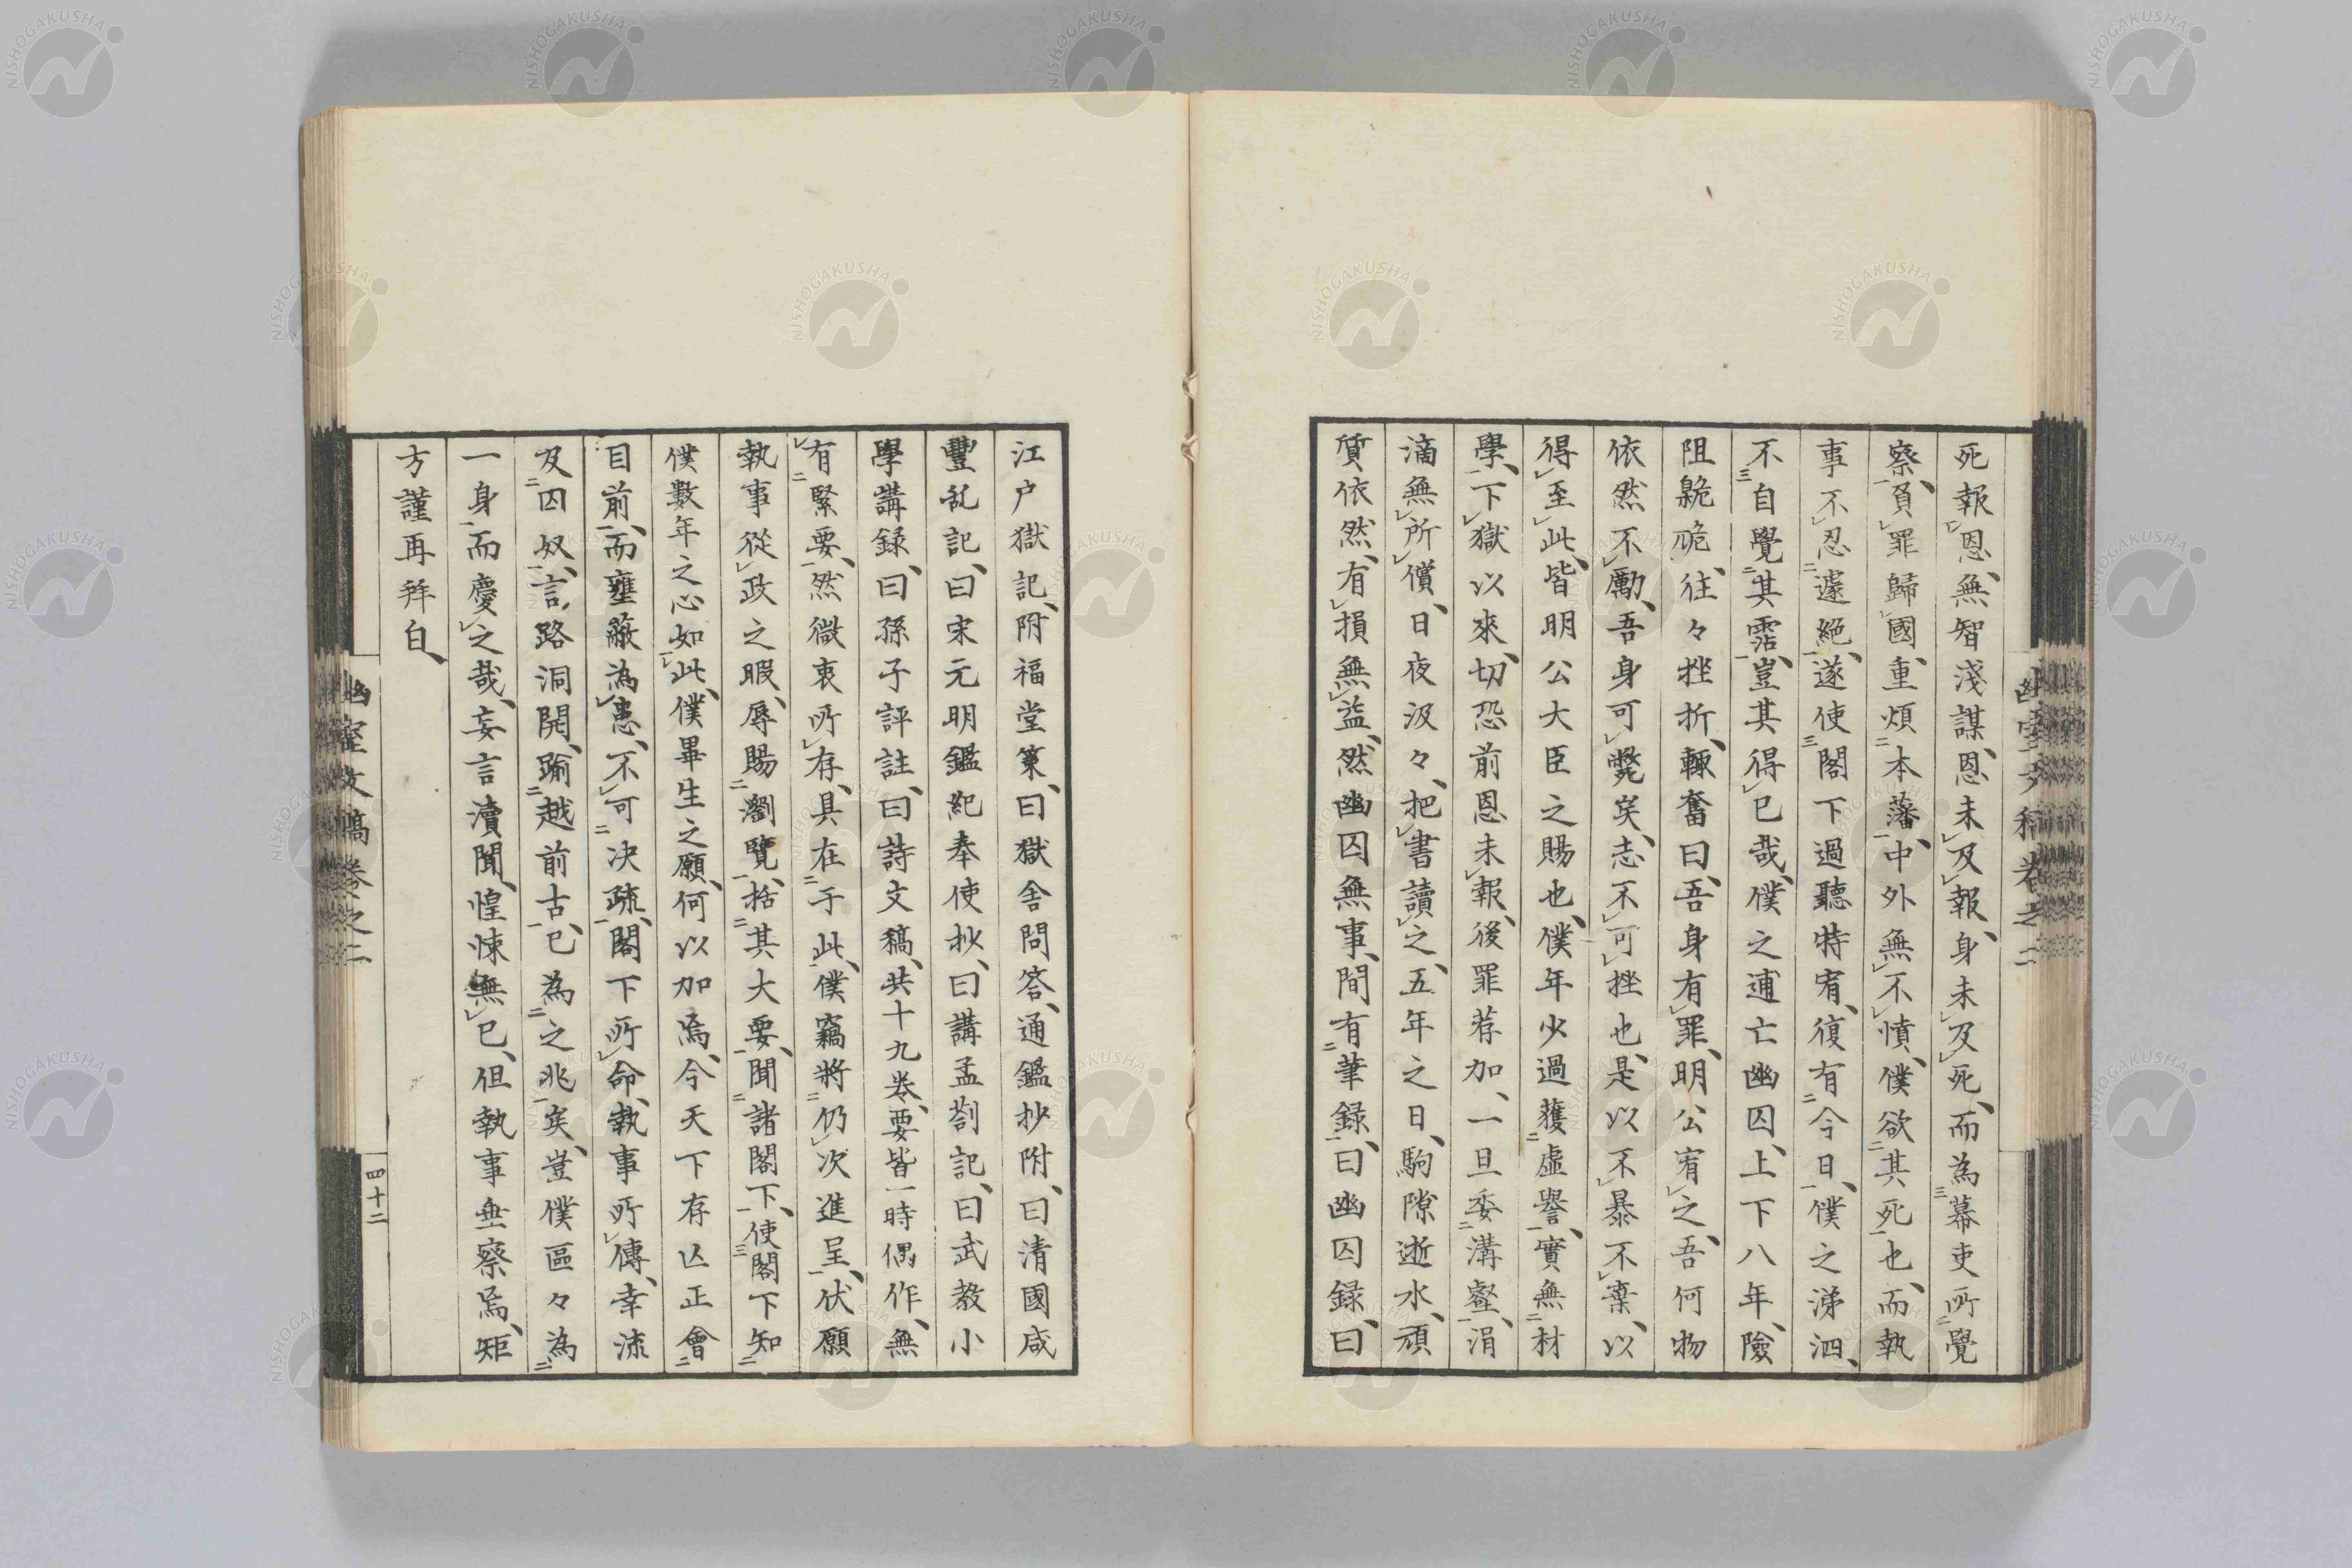 死報恩、無智淺謀、恩未及報、身未及死、而為幕吏所覺
察、負罪歸國、重煩本藩、中外無不憤、僕欲其死也、而執
事不忍遽絕、遂使閣下過聽特宥、復有今日、僕之涕泗、
不自覺其霑、豈其得已哉、僕之逋亡幽囚、上下八年、險
阻臲卼、往々挫折、輒奮曰、吾身有罪、明公宥之、吾何物
依然不勵、吾身可斃矣、志不可挫也、是以不暴不棄、以
得至此、皆明公大臣之賜也、僕年少過獲虛譽、實無材
學、下獄以來、切恐前恩未報、後罪荐加、一旦委溝壑、涓
滴無所償、日夜汲々、把書讀之、五年之日、駒隙逝水、頑
質依然、有損無益、然幽囚無事、間有筆録、曰幽囚録、曰
江戸獄記、附福堂策、曰獄舎問答、通鑑抄附、曰清國咸
豐乱記、曰宋元明鑑紀奉使抄、曰講孟劄記、曰武教小
學講録、曰孫子評註、曰詩文稿、共十九卷、要皆一時偶作、無
有緊要、然微衷所存、具在于此、僕竊將仍次進呈、伏願
執事從政之暇、辱賜瀏覽、括其大要、聞諸閣下、使閣下知
僕數年之心如此、僕畢生之願、何以加焉、今天下存亾正會
目前、而壅蔽為患、不可决疏、閣下所命、執事所傳、幸流
及囚奴、言路洞開、踰越前古、已為之兆矣、豈僕區々為
一身而慶之哉、妄言瀆聞、惶悚無已、但執事垂察焉、矩
方謹再拜白、
幽室文稿卷之二
四十二
幽室文稿卷之二